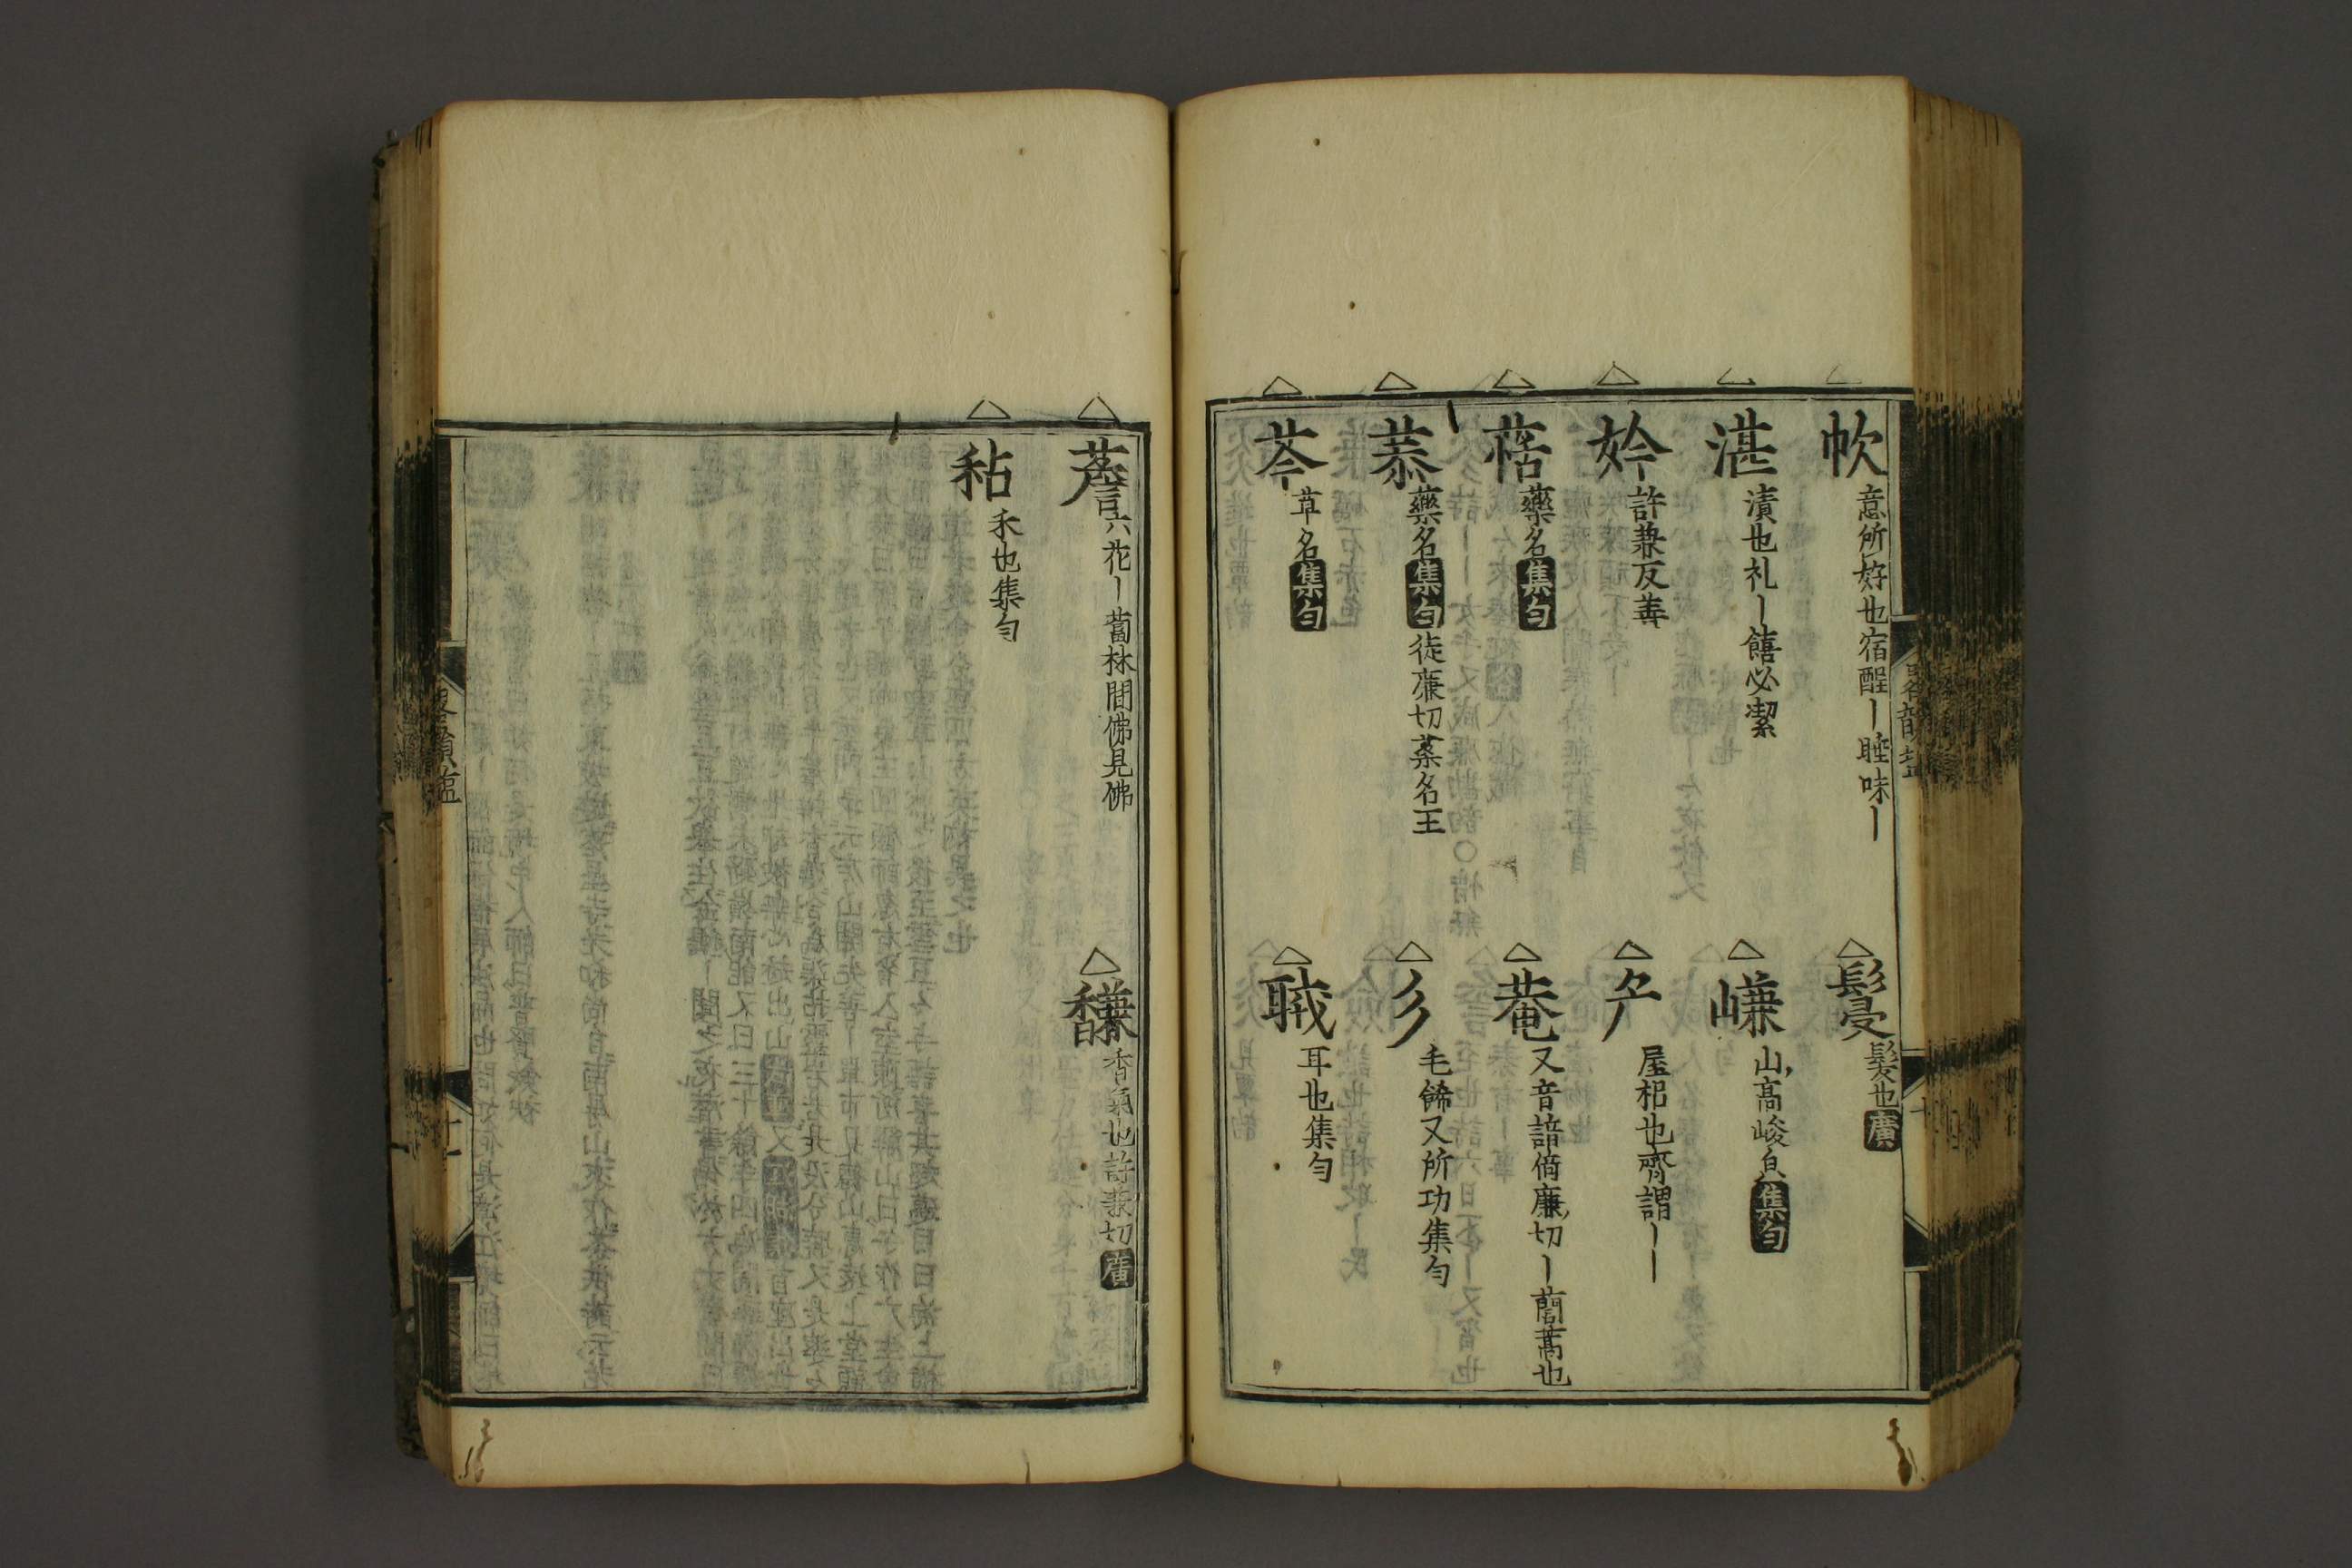 忺 意所好也宿酲丨睡味丨
鬘 髮也廣
湛 漬也礼丨饎必潔
嵰 山高峻皃集勻
妗 許兼反善
厃 屋梠也齊謂丨丨
萜 藥名集勻
菴 又音諳倚廉切丨蕳蒿也
菾 藥名集勻徒廉切菜名王
彡 毛飾又所功集勻
芩 草名集勻
聅 耳也集勻
薝 六花丨蔔林間佛見佛
馦 香氣也許兼切廣
秥 禾也集勻